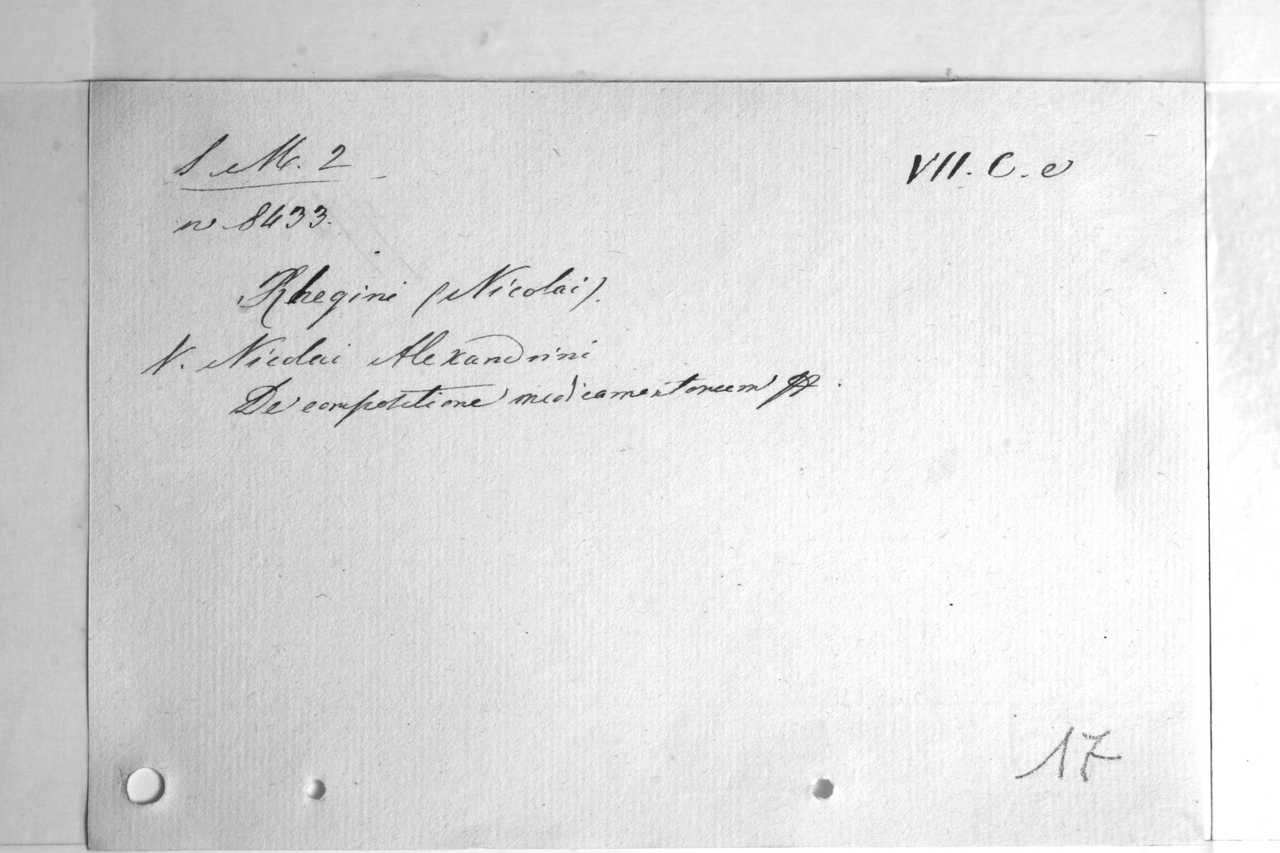 S M. 2
VII. C. e
n 8433.
Rhegini (Nicolai).
V. Nicolai Alexandrini
De compositione medicamentorum
17